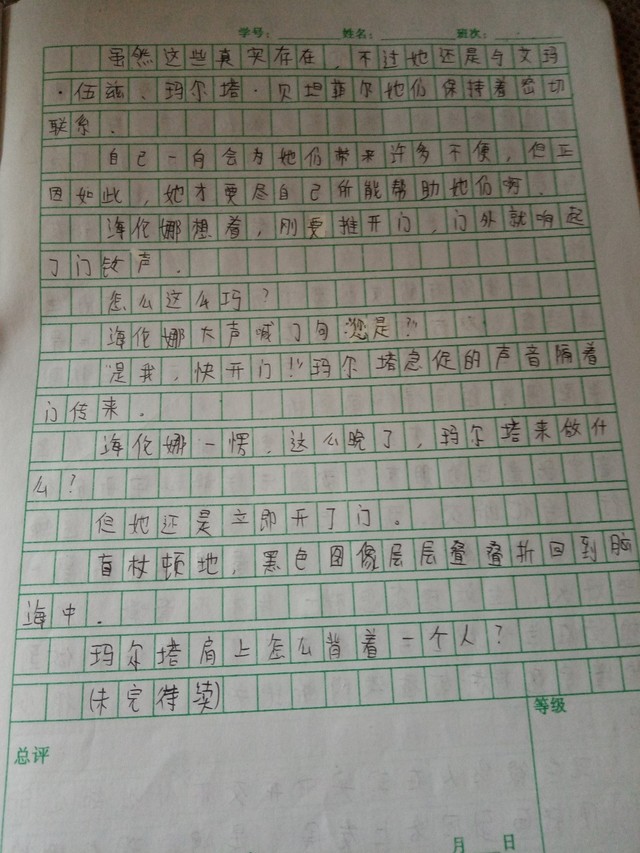 学号：姓名：班次：
虽然这些真实存在，不过她还是与艾玛
·伍兹、玛尔塔·贝坦菲尔她们保持着密切
联系．
自己一向会为她们带来许多不便，但正
因如此，她才更尽自己所能帮助她们啊．
海伦娜想着，刚要推开门，门外就响起
了门铃声．
怎么这么巧？
海伦娜大声喊了句"您是?"
"是我，快开门!"玛尔塔急促的声音隔着
门传来。
海伦娜一愣，这么晚了，玛尔塔来做什
么？
但她还是立即开了门。
盲杖顿地，黑色图像层层叠叠折回到脑
海中．
玛尔塔肩上怎么背着一个人？
(未完待续)
总评
等级
月 日